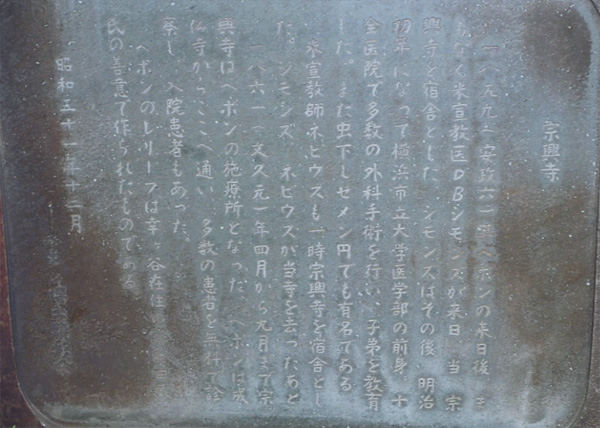 宗興寺
一八五九（安政六）年ヘボンの来日後 ま
もなく米宣教医DBシモンズが来日 当 宗
興寺を宿舎とした シモンズはその後 明治
初年になって横浜市立大学医学部の前身 十
全医院で多数の外科手術を行い 子弟を教育
した。また虫下しセメン円でも有名である
米宣教師ネビウスも一時宗興寺を宿舎とし
た。シモンズ ネビウスが当寺を去ったあと
一八六一（文久元）年四月から九月まで宗
興寺はヘボンの施療所となった。ヘボンは成
仏寺からここへ通い 多数の患者を無料で診
察し 入院患者もあった。
ヘボンのレリーフは幸ヶ谷在住
民の善意で作られたものである
昭和五十一年十二月